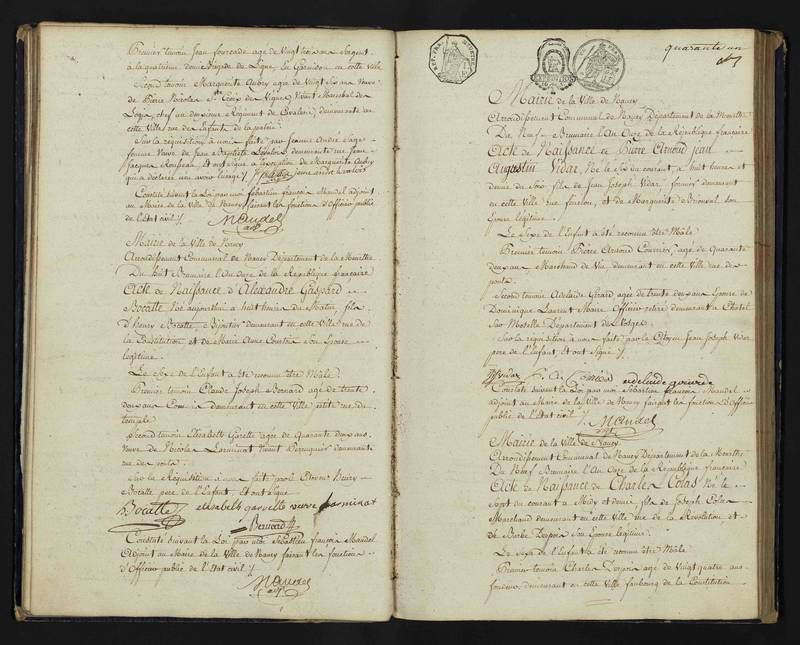 Premier temoin Jean fourcade agé de Vingt trois ans Sergent
à la quatrieme demi Brigade de Ligne, En Garnison en cette Ville
Second temoin Marguerite Aubry agée de Vingt Six ans Veuve
de Pierre Nicolas
Logis, chef au douzieme Regiment de Cavalerie, demeurante en
cette Ville rue des Enfants de la patrie
Sur la requisition à nous faite par Jeanne André Sage
femme Veuve de Jean Baptiste demeurante rue Jean
Jacques Rousseau Et ont signé à l'exception de Marguerite Aubry
qui a déclaré ne savoir
Constaté suivant la Loi par moi Sebastien françois Mandel adjoint
au Maire de la Ville de Nancy faisant les fonctions d'Officier public
de l'état civil ./.
Mandel
adj.
Mairie de la Ville de Nancy
Arrondissement Communal de Nancy Département de la Meurthe
Du huit Brumaire l'An Onze de la République française
Acte de Naissance d'Alexandre Gaspard
Bocatte Né aujourd'hui à huit heures du Matin, fils
d'henry Bocatte, Bijoutier demeurant en cette Ville rue de
la Constitution et de Marie Anne son Epouse
legitime.
Le sexe de l'Enfant a été reconnu être Mâle.
Premier temoin Claude Joseph Bernard agé de trente
deux ans demeurant en cette Ville petite rue du
temple
Second temoin Elisabeth Garelle agée de Quarante deux ans
Veuve de Nicolas Larminat Vivant Perruquier demeurante
rue de
Sur la Requisition à nous faite par le Citoyen henry
Bocatte pere de l'Enfant, Et ont signé
h Bocatte elisabeth garelle veuve larminat
Bernard
Constaté suivant la Loi par moi Sebastien françois Mandel
Adjoint au Maire de la Ville de Nancy faisant les fonctions
d'Officier public de l'état civil ./.
Mandel
adj.
quarante un
Mairie de la Ville de Nancy
Arrondissement Communal de Nancy Département de la Meurthe
Du Neuf Brumaire l'An Onze de la République française
Acte de Naissance de Pierre Arnoud Jean
Augustin Vidar, Né le Six du courant, à huit heures et
demie du Soir fils de Jean Joseph Vidar, demeurant
en cette Ville rue et de Marguerite son
Epouse légitime.
Le Sexe de l'Enfant a été reconnu être Mâle
Premier temoin Pierre Arnoud Courrier, agé de Quarante
deux ans, Marchand de Vin, demeurant en cette Ville rue des
ponts.
Second temoin Adelaide Girard agée de trente deux ans Epouse de
Dominique Laurent Maire Officier retiré demeurant à Chatel
Sur Moselle Département des Vosges
Sur la réquisition à nous faite par le Citoyen Jean Joseph Vidar
pere de l'Enfant, et ont signé ./.
Vidar adelaide
Constaté suivant la Loi par moi Sebastien françois Mandel
adjoint au Maire de la Ville de Nancy faisant les fonctions d'Officier
public de l'état civil ./.
Mandel
adj.
Mairie de la Ville de Nancy
Arrondissement Communal de Nancy Département de la Meurthe
Du Neuf Brumaire l'An Onze de la République française
Acte de Naissance de Charles Colas Né le
Sept du courant à Midy et demie, fils de Joseph Colas
Marchand demeurant en cette Ville rue de la Révolution, et
de Barbe son Epouse légitime.
Le sexe de l'Enfant a été reconnu être Mâle
Premier temoin Charles agé de Vingt quatre ans
fondeur, demeurant en cette Ville faubourg de la Constitution